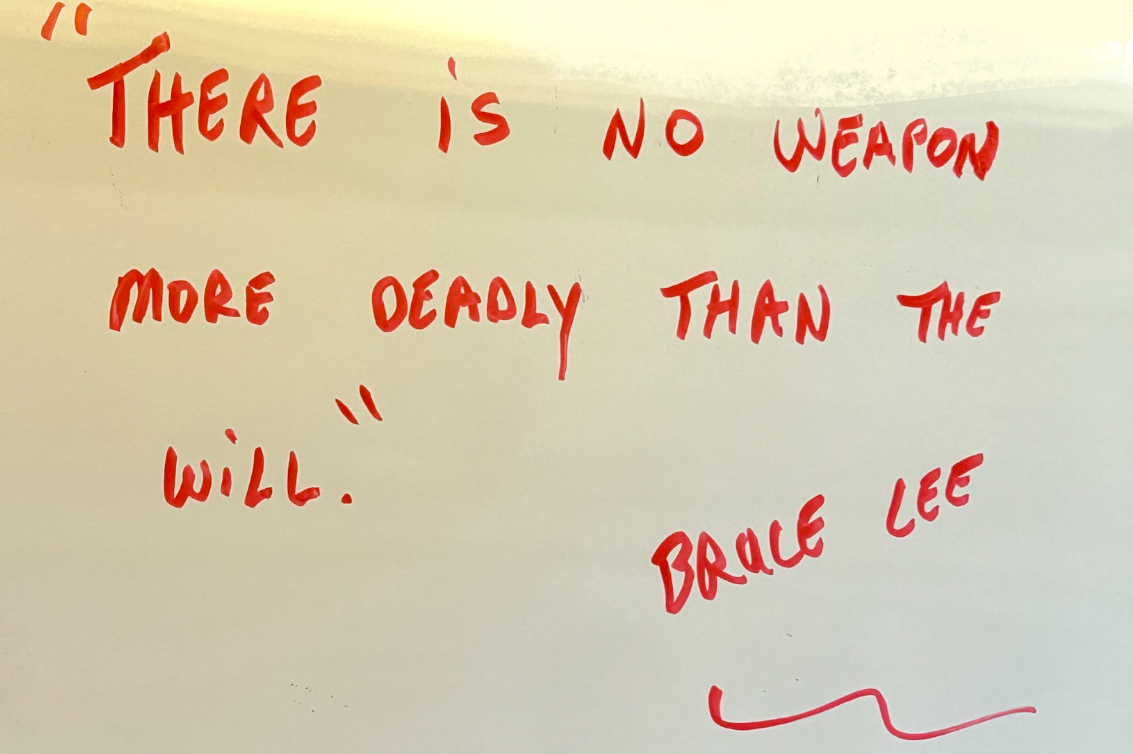 "THERE iS NO WEAPON
MORE DEADLY THAN THE
WiLL."
BRUCE LEE